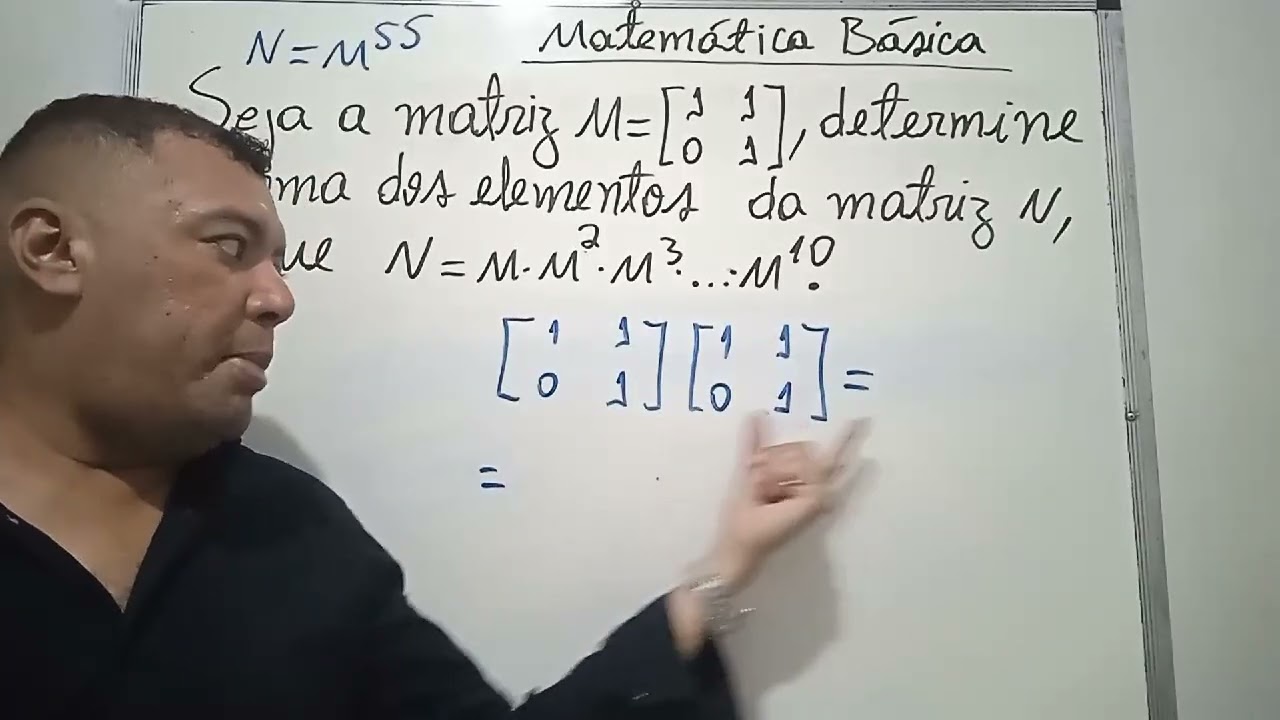 N=M⁵⁵
Matemática Básica
Seja a matriz M=[1 1; 0 1], determine
ma dos elementos da matriz N,
ue N = M·M²·M³·...·M¹⁰.
[1 1; 0 1] [1 1; 0 1] =
=